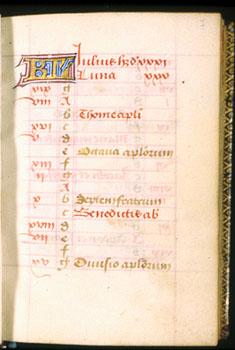 KL Iulius hȝ d xxxi
Luna xxx
xix g
viii A
b Thome apli
xvi c
v d
e Octava aplorum
xiii f
ii g
A
x b Septem fratrum
c Benedicti ab
xviii d
vii e
f
xv g Divisio aplorum